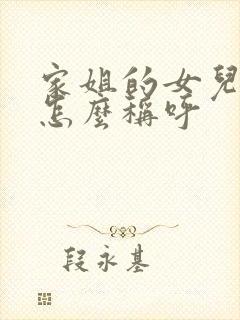 家姐的女兒
怎麼稱呼
段永基